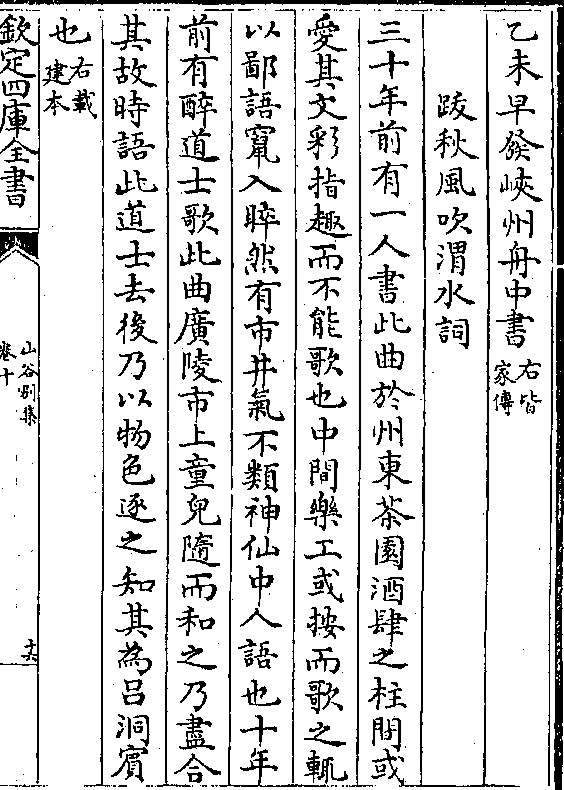 乙未早發峽州舟中書右皆家傳
跋秋風吹渭水詞
三十年前有一人書此曲於州東茶園酒肆之柱間或
愛其文彩指趣而不能歌也中間樂工或按而歌之輒
以鄙語竄入睟然有市井氣不類神仙中人語也十年
前有醉道士歌此曲廣陵市上童兒隨而和之乃盡合
其故時語此道士去後乃以物色逐之知其為呂洞賓
也右載建本
欽定四庫全書
山谷別集
卷十
十六